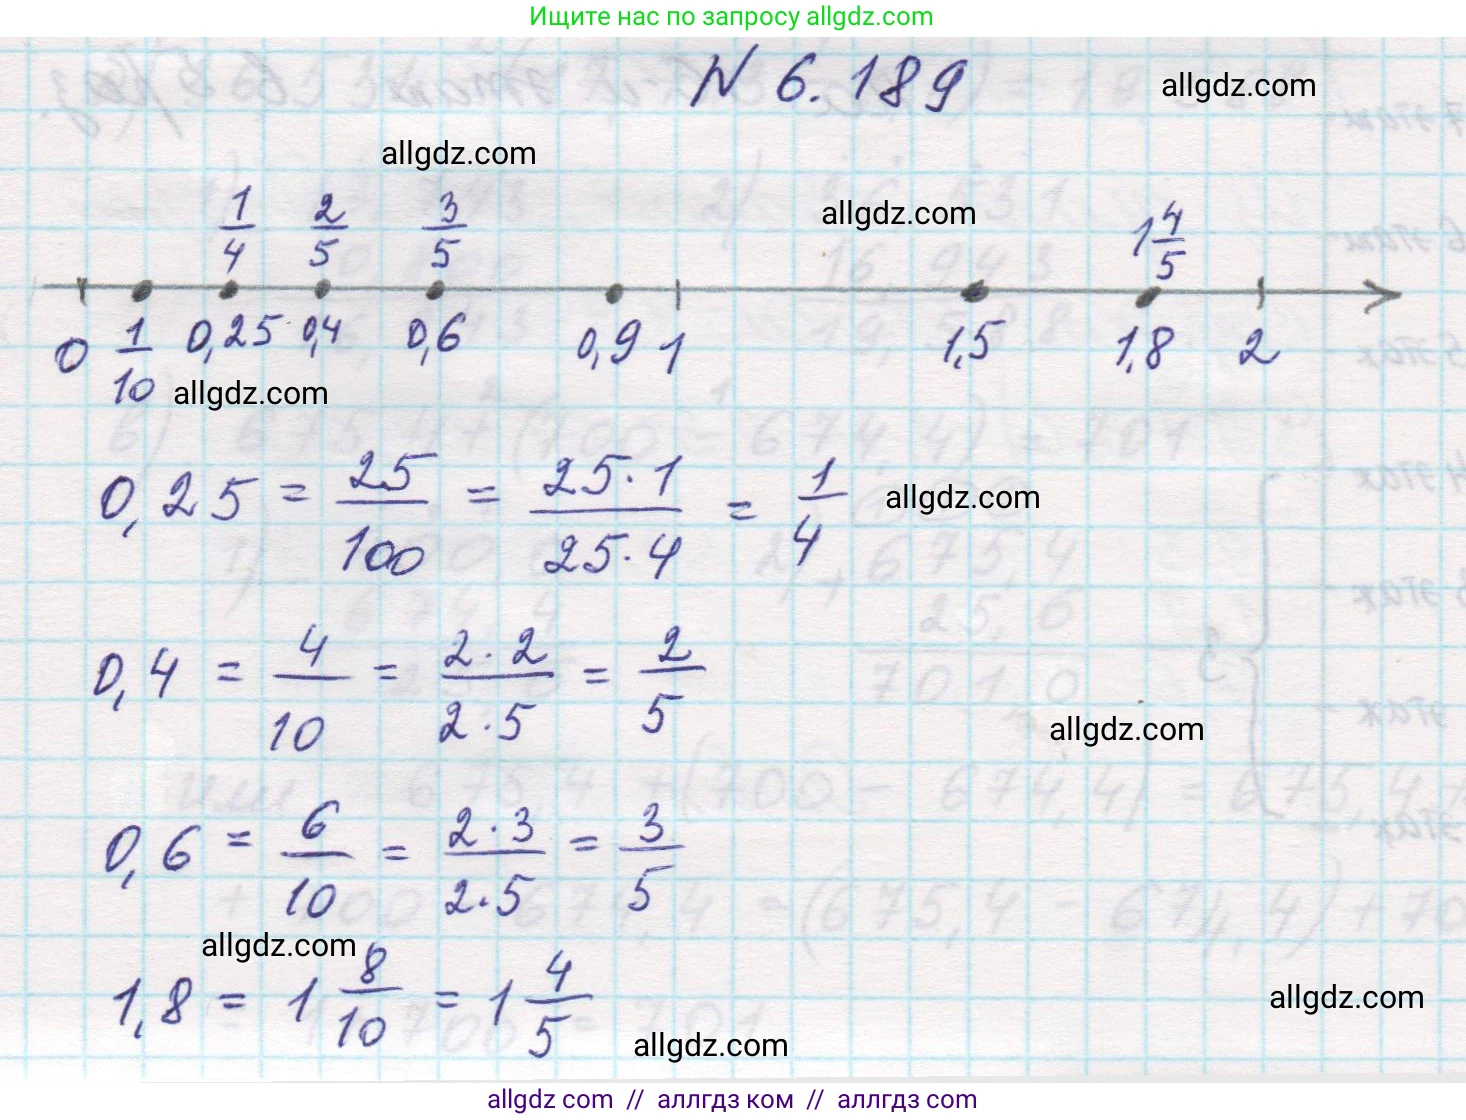 Ищите нас по запросу allgdz.com
N 6.189
allgdz.com
allgdz.com
allgdz.com
1/4 2/5 3/5 1 4/5
0 1/10 0,25 0,4 0,6 0,9 1 1,5 1,8 2
allgdz.com
0,25 = 25/100 = 25·1/25·4 = 1/4
allgdz.com
0,4 = 4/10 = 2·2/2·5 = 2/5
allgdz.com
0,6 = 6/10 = 2·3/2·5 = 3/5
allgdz.com
1,8 = 1 8/10 = 1 4/5
allgdz.com
allgdz.com
allgdz com // аллгдз ком // аллгдз com